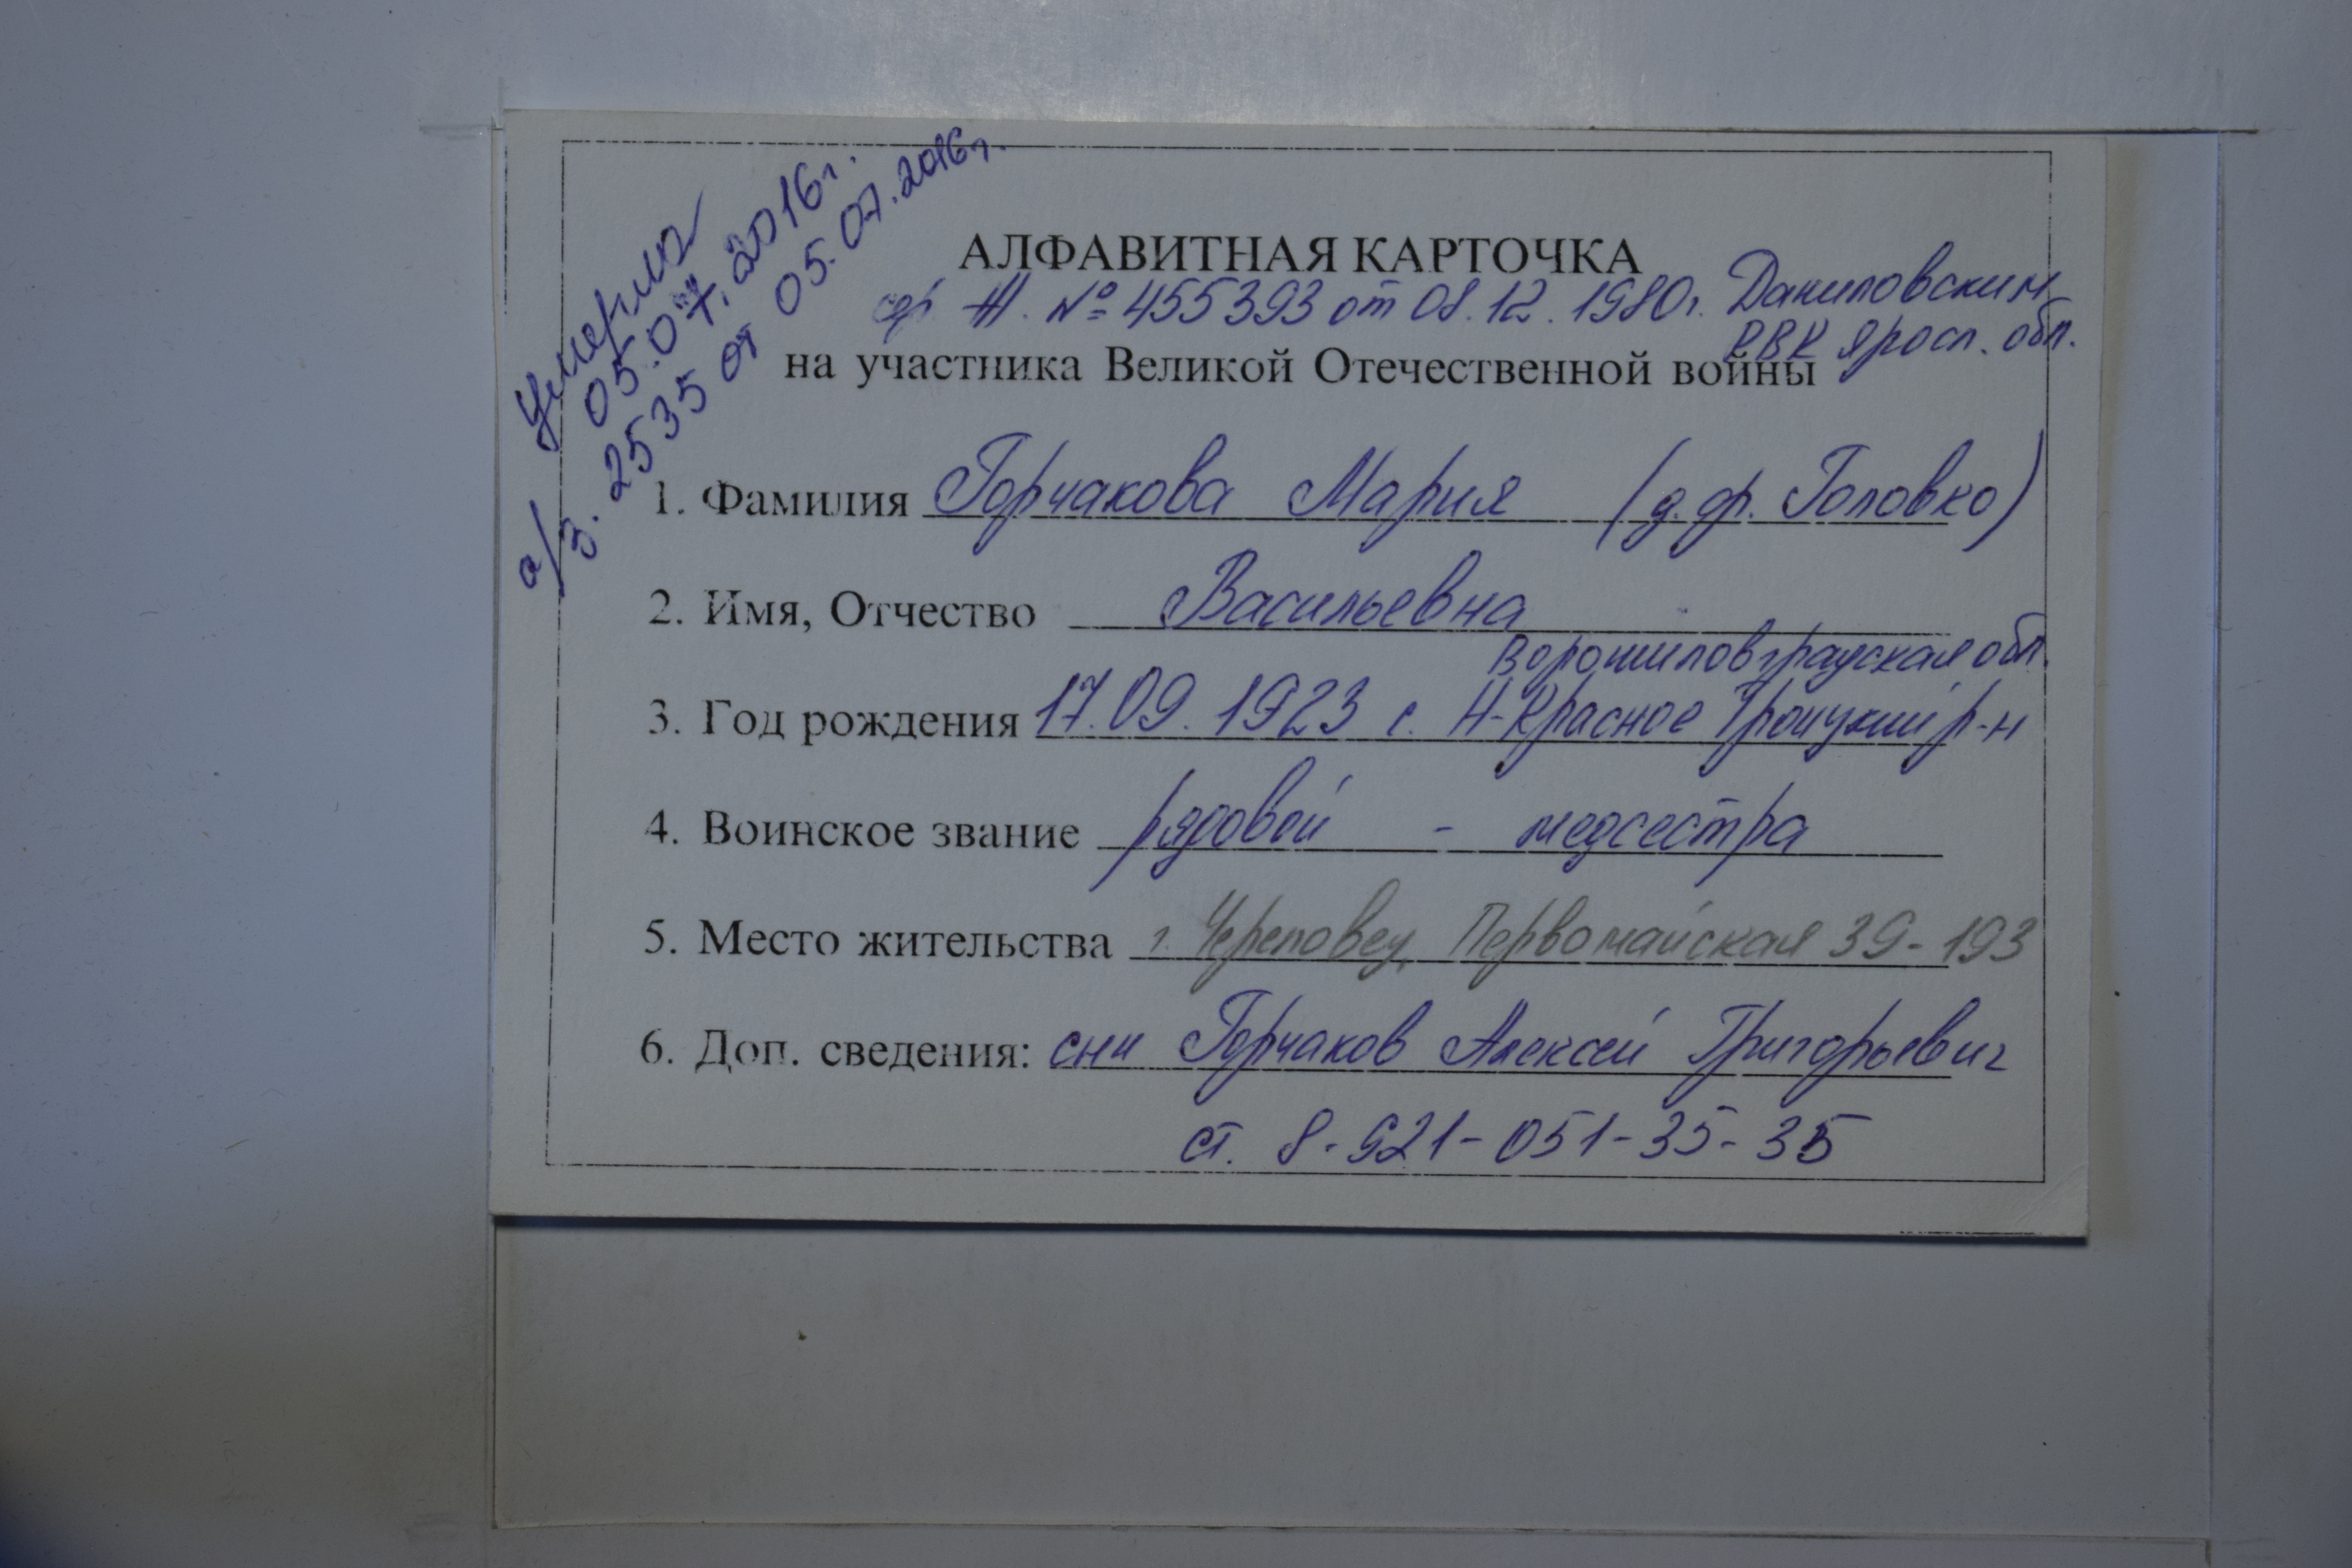 Умерла
05.07.2016г.
а/з. 2535 от 05.07.2016г.
АЛФАВИТНАЯ КАРТОЧКА
№ 455393 от 08.12.1980г. Даниловским
РВК Яросл. обл.
на участника Великой Отечественной войны
1. Фамилия Горчакова Мария (д.ф. Головко)
2. Имя, Отчество Васильевна
Ворошиловградская обл.
3. Год рождения 17.09.1923 с. Н-Красное Троицкий р-н
4. Воинское звание рядовой - медсестра
5. Место жительства г. Череповец, Первомайская 39-193
6. Доп. сведения: сын Горчаков Алексей Григорьевич
ст. 8-921-051-35-35